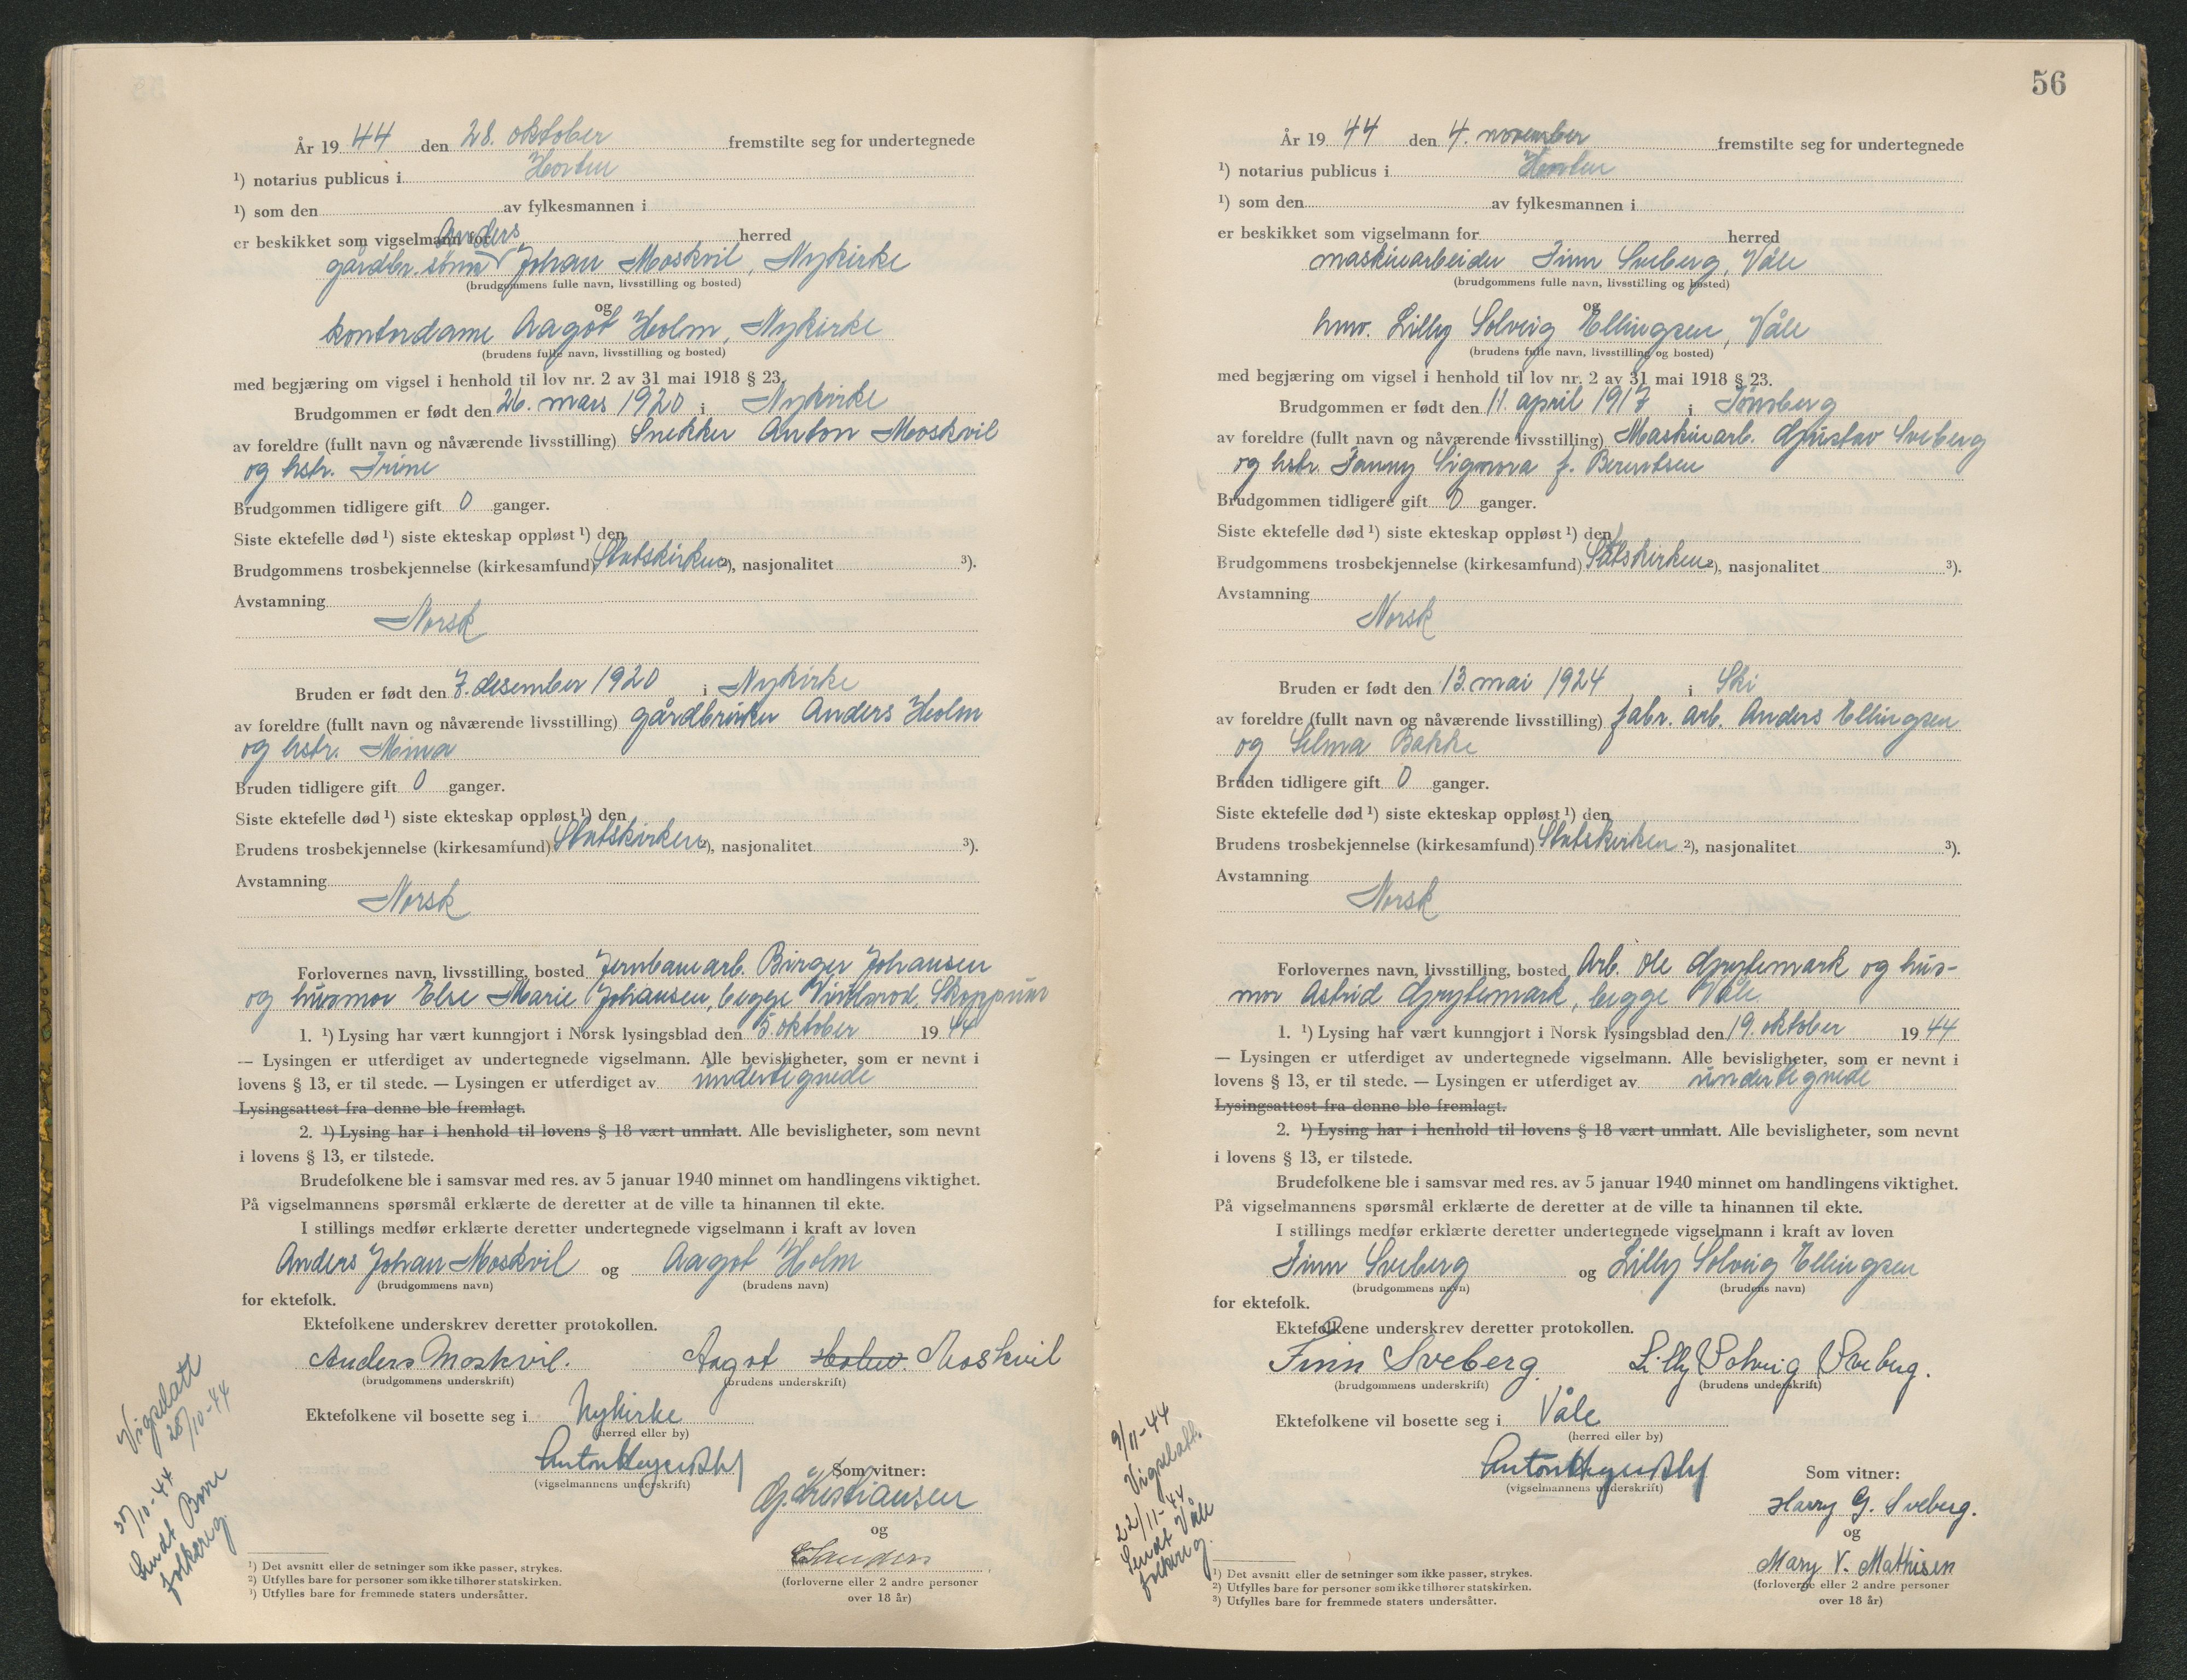 År 19 44 den 28. oktober fremstilte seg for undertegnede
¹) notarius publicus i Horten
¹) som den av fylkesmannen i
er beskikket som vigselmann for herred
Anders
gårdbr. sønn Johan Moskvil, Nykirke
(brudgommens fulle navn, livsstilling og bosted)
og
kontordame Aagot Holm, Nykirke
(brudens fulle navn, livsstilling og bosted)
med begjæring om vigsel i henhold til lov nr. 2 av 31 mai 1918 § 23.
Brudgommen er født den 26. mars 1920 i Nykirke
av foreldre (fullt navn og nåværende livsstilling) Snekker Anton Moskvil
og hstr. Trine
Brudgommen tidligere gift 0 ganger.
Siste ektefelle død ¹) siste ekteskap oppløst ¹) den
Brudgommens trosbekjennelse (kirkesamfund) Statskirken ²), nasjonalitet ³).
Avstamning
Norsk
Bruden er født den 7. desember 1920 i Nykirke
av foreldre (fullt navn og nåværende livsstilling) gårdbruker Anders Holm
og hstr. Mina
Bruden tidligere gift 0 ganger.
Siste ektefelle død ¹) siste ekteskap oppløst ¹) den
Brudens trosbekjennelse (kirkesamfund) Statskirken ²), nasjonalitet ³).
Avstamning
Norsk
Forlovernes navn, livsstilling, bosted Jernbanearb. Birger Johansen
og husmor Else Marie Johansen, begge Skoppum
1. ¹) Lysing har vært kunngjort i Norsk lysingsblad den 5. oktober 19 44
— Lysingen er utferdiget av undertegnede vigselmann. Alle bevisligheter, som er nevnt i
lovens § 13, er til stede. — Lysingen er utferdiget av undertegnede
Lysingsattest fra denne ble fremlagt.
2. ¹) Lysing har i henhold til lovens § 18 vært unnlatt. Alle bevisligheter, som nevnt
i lovens § 13, er tilstede.
Brudefolkene ble i samsvar med res. av 5 januar 1940 minnet om handlingens viktighet.
På vigselmannens spørsmål erklærte de deretter at de ville ta hinannen til ekte.
I stillings medfør erklærte deretter undertegnede vigselmann i kraft av loven
Anders Johan Moskvil og Aagot Holm
(brudgommens navn) (brudens navn)
for ektefolk.
Ektefolkene underskrev deretter protokollen.
Anders Moskvil. Aagot Holm. Moskvil
(brudgommens underskrift) (brudens underskrift)
Ektefolkene vil bosette seg i Nykirke
(herred eller by)
Anton
(vigselmannens underskrift)
Som vitner:
G. Kristiansen
og
(forloverne eller 2 andre personer
over 18 år)
Vigselatt
28/10-44
30/10-44
Sendt Borre
folkereg.
¹) Det avsnitt eller de setninger som ikke passer, strykes.
²) Utfylles bare for personer som ikke tilhører statskirken.
³) Utfylles bare for fremmede staters undersåtter.
56
År 19 44 den 4. november fremstilte seg for undertegnede
¹) notarius publicus i Horten
¹) som den av fylkesmannen i
er beskikket som vigselmann for herred
maskinarbeider Finn Sveberg, Våle
(brudgommens fulle navn, livsstilling og bosted)
og
hmv. Lilly Solveig Ellingsen, Våle
(brudens fulle navn, livsstilling og bosted)
med begjæring om vigsel i henhold til lov nr. 2 av 31 mai 1918 § 23.
Brudgommen er født den 11. april 1917 i Tønsberg
av foreldre (fullt navn og nåværende livsstilling) Maskinarb. Gustav Sveberg
og hstr. Fanny Signora f. Berentsen
Brudgommen tidligere gift 0 ganger.
Siste ektefelle død ¹) siste ekteskap oppløst ¹) den
Brudgommens trosbekjennelse (kirkesamfund) Statskirken ²), nasjonalitet ³).
Avstamning
Norsk
Bruden er født den 13. mai 1924 i Ski
av foreldre (fullt navn og nåværende livsstilling) fabr. arb. Anders Ellingsen
og Selma Bakke
Bruden tidligere gift 0 ganger.
Siste ektefelle død ¹) siste ekteskap oppløst ¹) den
Brudens trosbekjennelse (kirkesamfund) Statskirken ²), nasjonalitet ³).
Avstamning
Norsk
Forlovernes navn, livsstilling, bosted Arb. Ole Grytemark og hus-
mor Astrid Grytemark, begge Våle
1. ¹) Lysing har vært kunngjort i Norsk lysingsblad den 19. oktober 19 44
— Lysingen er utferdiget av undertegnede vigselmann. Alle bevisligheter, som er nevnt i
lovens § 13, er til stede. — Lysingen er utferdiget av undertegnede
Lysingsattest fra denne ble fremlagt.
2. ¹) Lysing har i henhold til lovens § 18 vært unnlatt. Alle bevisligheter, som nevnt
i lovens § 13, er tilstede.
Brudefolkene ble i samsvar med res. av 5 januar 1940 minnet om handlingens viktighet.
På vigselmannens spørsmål erklærte de deretter at de ville ta hinannen til ekte.
I stillings medfør erklærte deretter undertegnede vigselmann i kraft av loven
Finn Sveberg og Lilly Solveig Ellingsen
(brudgommens navn) (brudens navn)
for ektefolk.
Ektefolkene underskrev deretter protokollen.
Finn Sveberg. Lilly Solveig Sveberg.
(brudgommens underskrift) (brudens underskrift)
Ektefolkene vil bosette seg i Våle
(herred eller by)
Anton
(vigselmannens underskrift)
Som vitner:
Harry G. Sveberg.
og
Mary V. Mathisen
(forloverne eller 2 andre personer
over 18 år)
9/11-44
Vigselatt.
22/11-44
Sendt Våle
folkereg.
¹) Det avsnitt eller de setninger som ikke passer, strykes.
²) Utfylles bare for personer som ikke tilhører statskirken.
³) Utfylles bare for fremmede staters undersåtter.